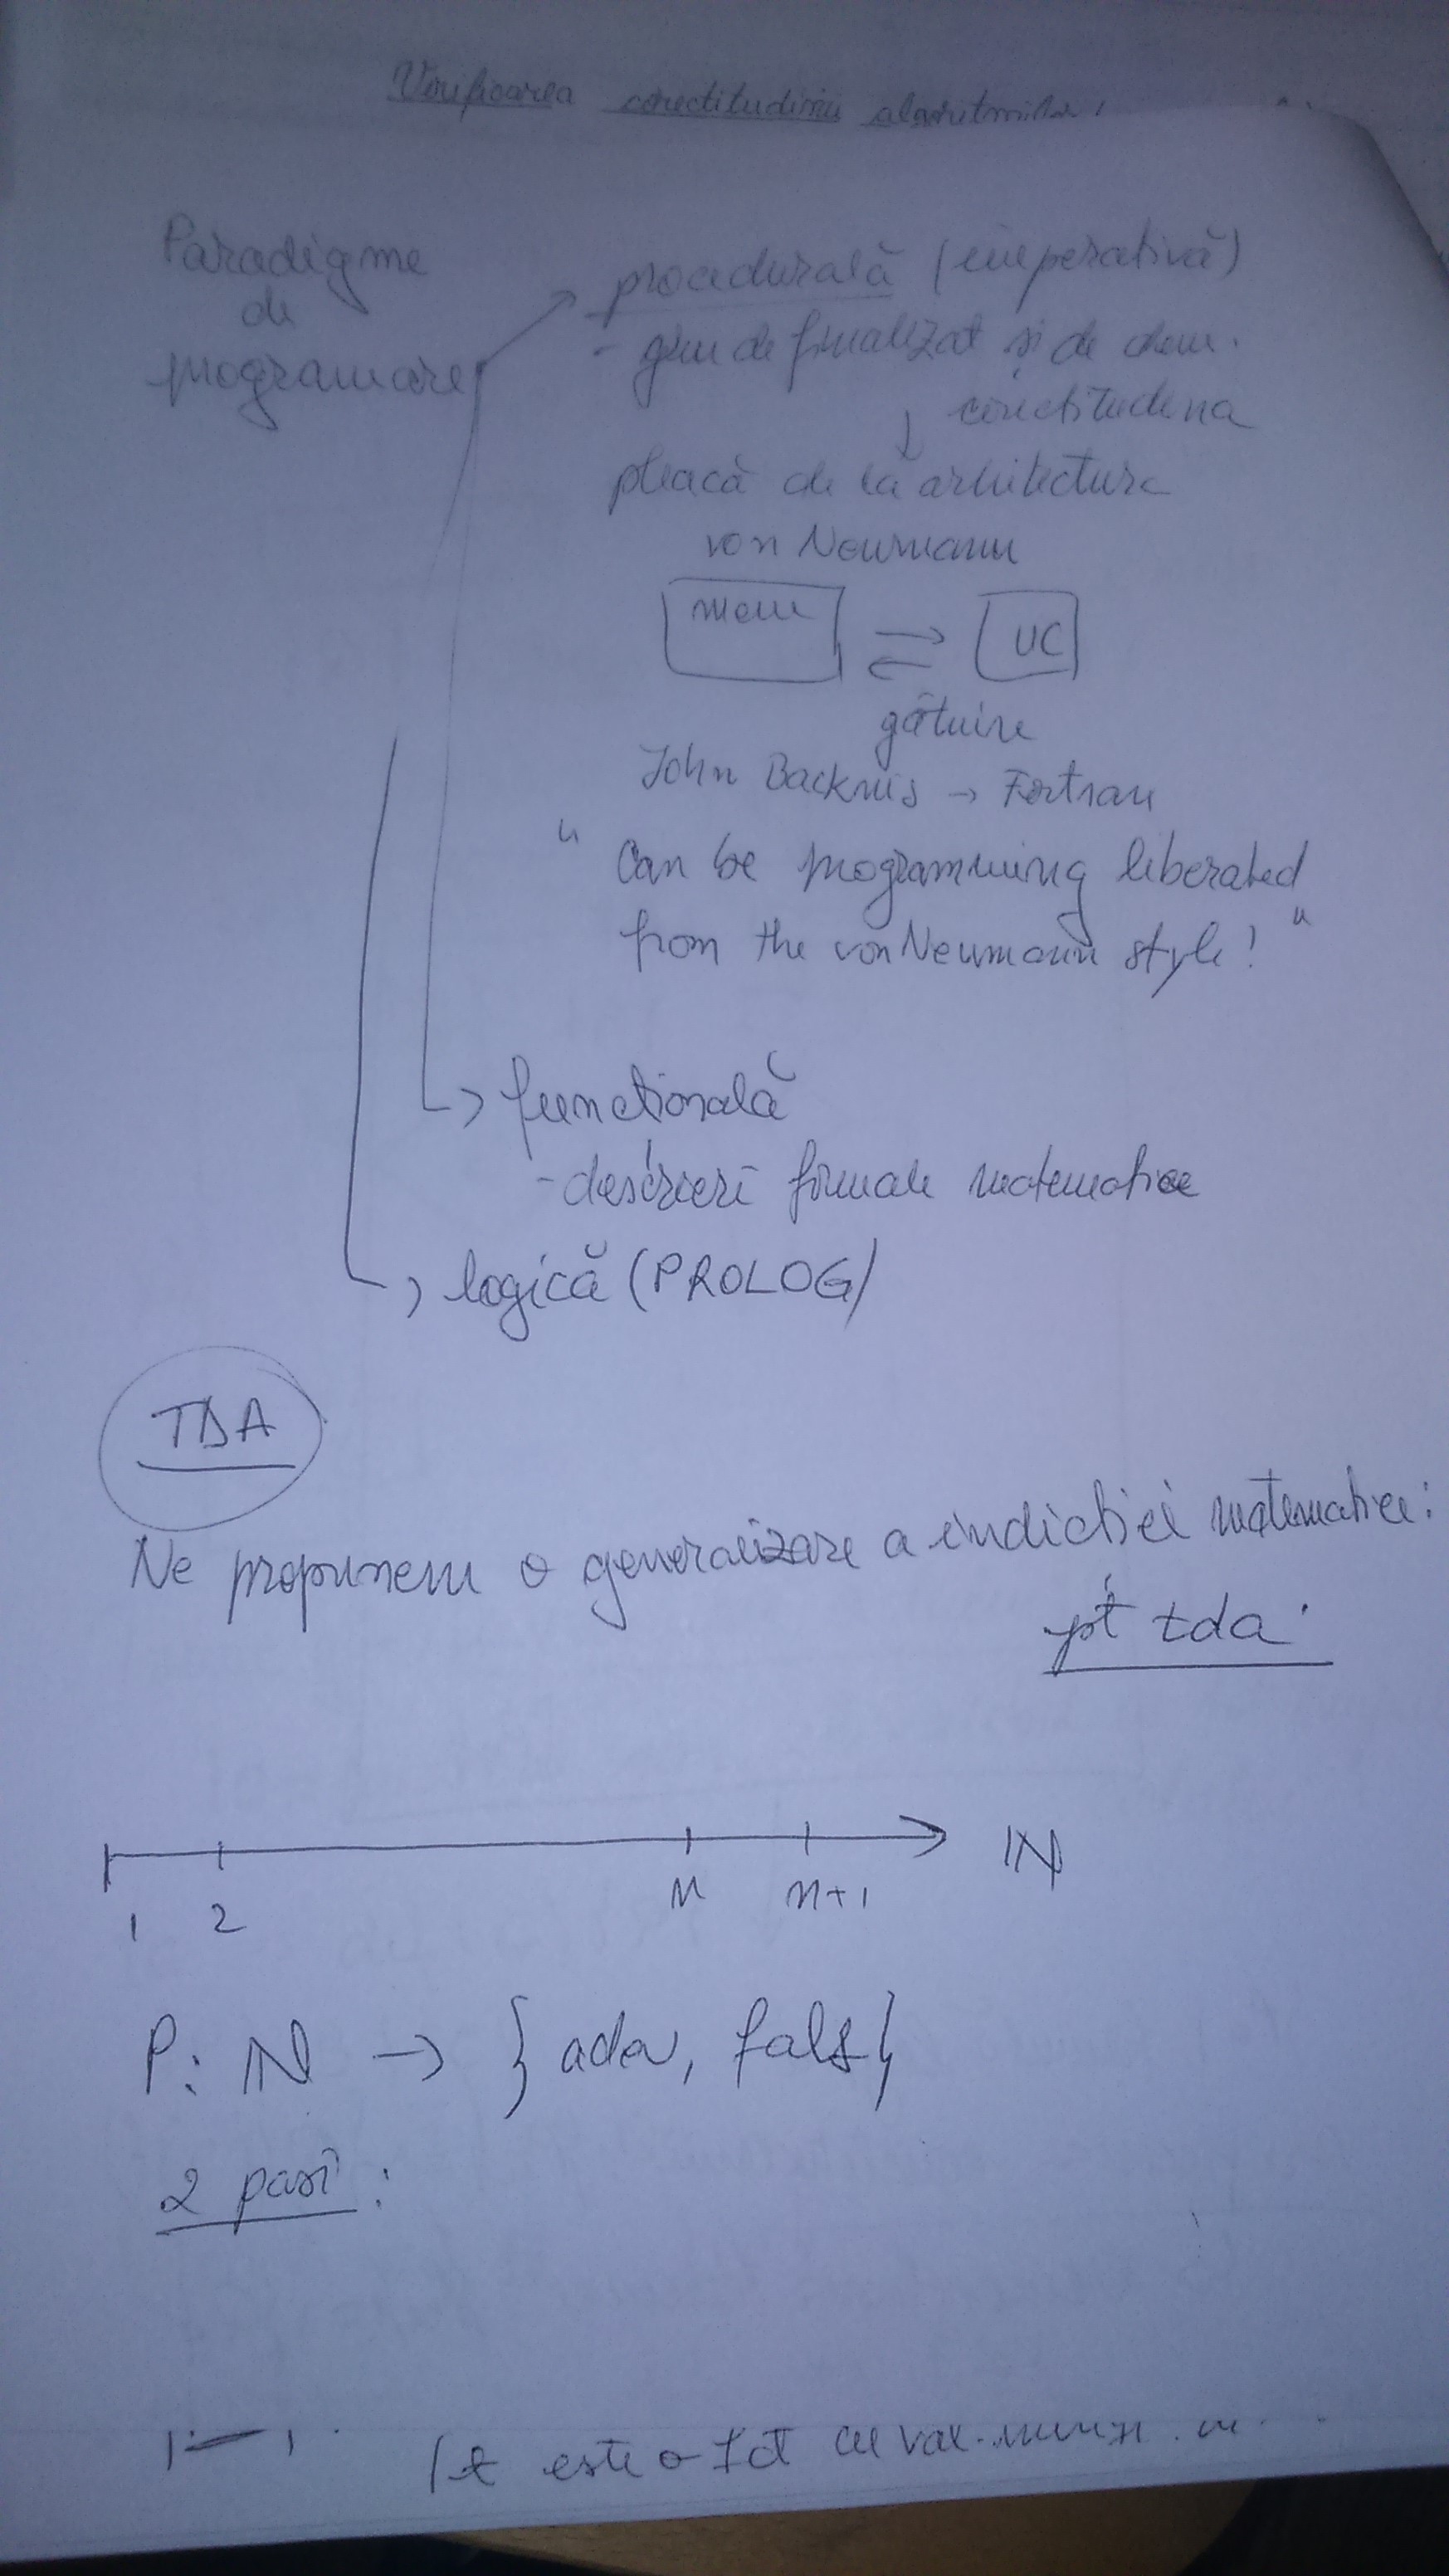 Verificarea corectitudinii algoritmilor
Paradigme
de
programare
procedurală (imperativă)
- greu de finalizat și de dem.
corectitudinea
pleacă de la arhitectura
von Neumann
mem
UC
gâtuire
John Backus → Fortran
" Can be programming liberated
from the von Neumann style! "
functională
- descrieri formale matematice
logică (PROLOG)
TDA
Ne propunem o generalizare a inductiei matematice:
pt tda
1 2 n n+1 N
P: N → {adev, fals}
2 pasi:
este o